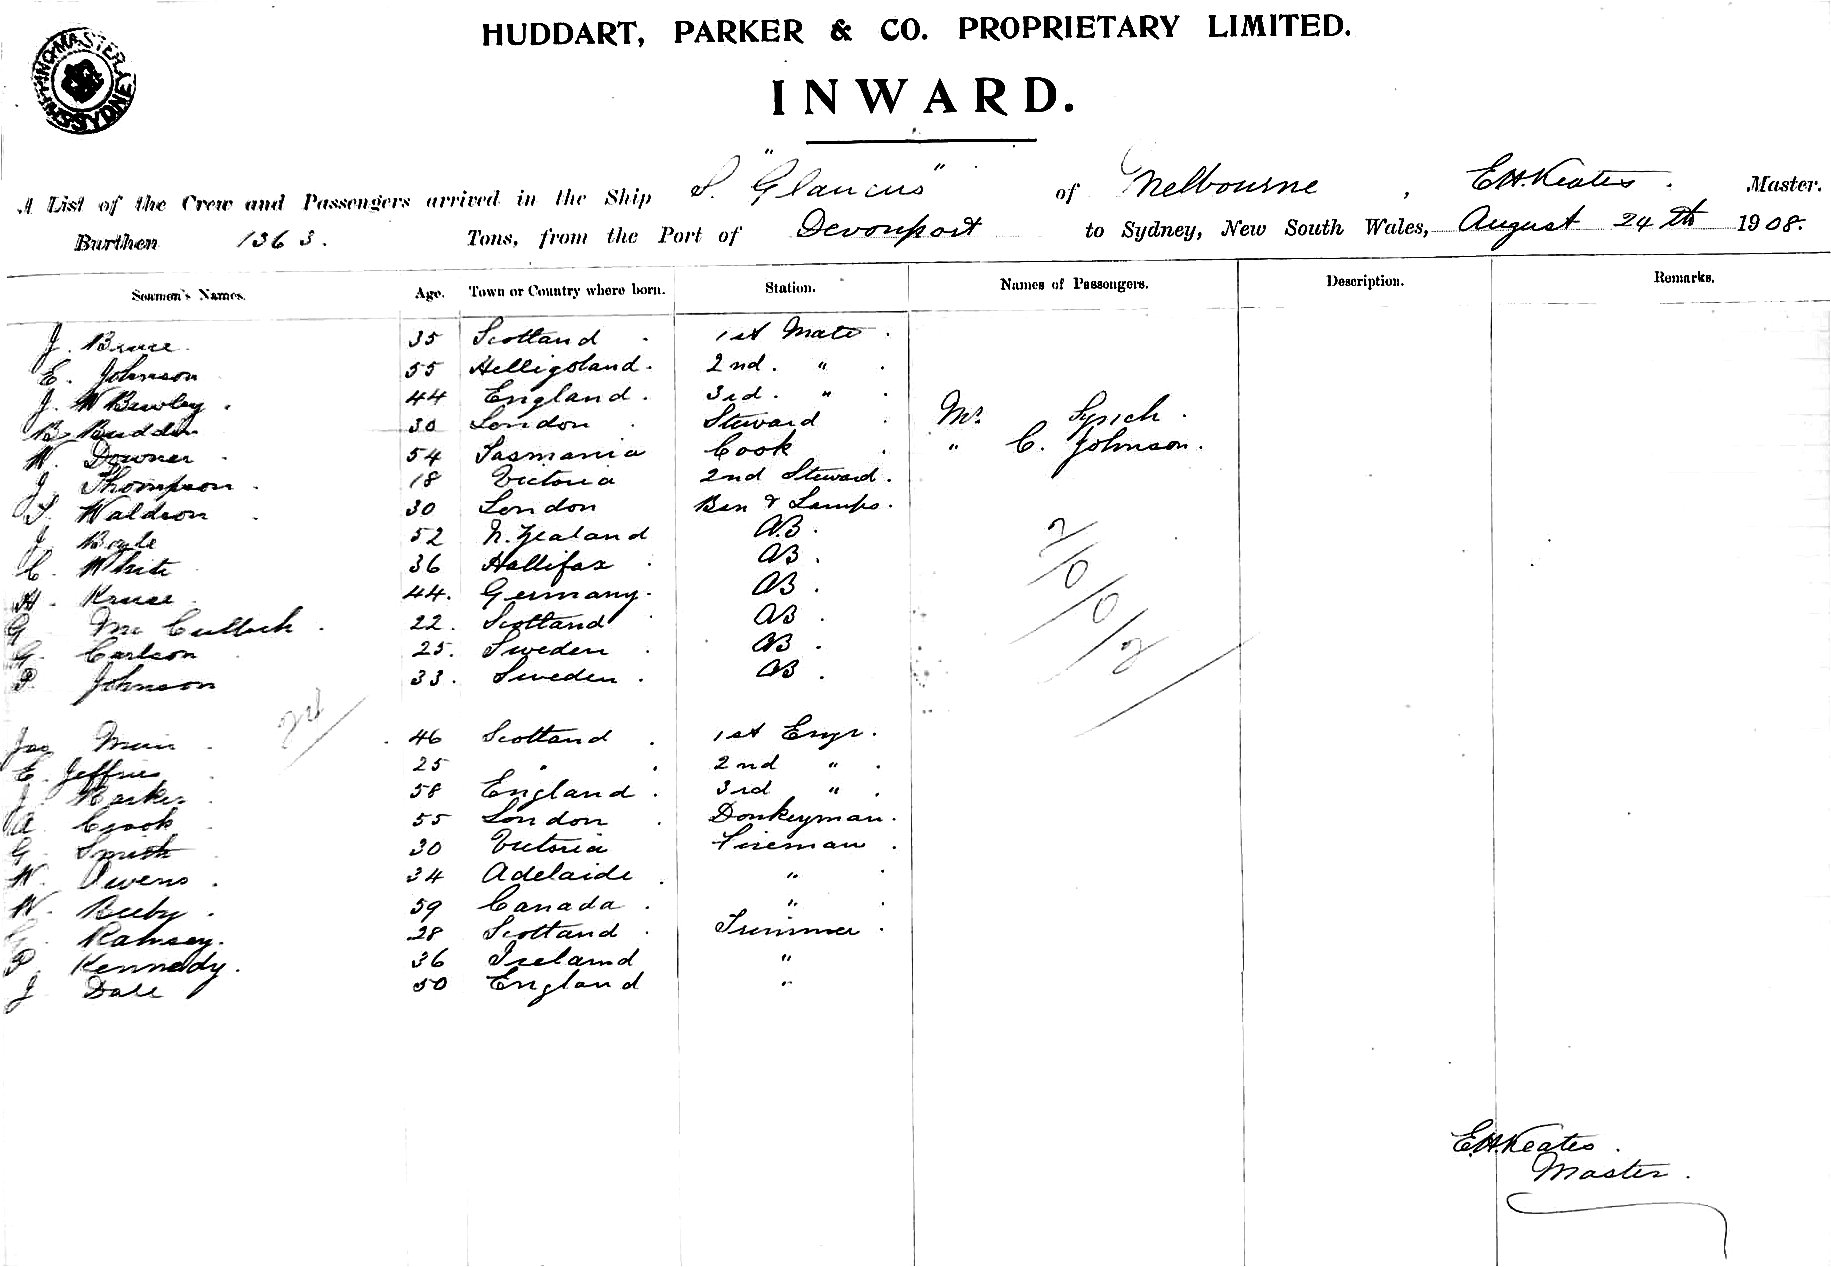 HUDDART, PARKER & CO. PROPRIETARY LIMITED.
INWARD.
SHIPPING MASTER SYDNEY
A List of the Crew and Passengers arrived in the Ship S. "Glaucus" of Melbourne, E.H. Keates. Master.
Burthen 1363. Tons, from the Port of Devonport to Sydney, New South Wales, August 24th 1908.
Seamen's Names. Age. Town or Country where born. Station. Names of Passengers. Description. Remarks.
J. Bruce. 35 Scotland. 1st Mate.
E. Johnson 55 Helligoland. 2nd. " .
J. W Bewley. 44 England. 3rd. " .
B Budden 30 London. Steward. Mr. Synch.
W. Downer. 54 Tasmania Cook. " C. Johnson.
J. Thompson. 18 Victoria 2nd Steward.
S. Waldron. 30 London Ben & Lamps.
J. Boyle 52 N. Zealand AB.
C. White 36 Hallifax. AB.
H. Kruse. 44. Germany. AB.
G Mc Cullock. 22. Scotland AB.
G. Carlson 25. Sweden. AB.
P. Johnson 33. Sweden. AB.
2/0/0/2/
23/
Jas Muir. 46 Scotland. 1st Engr.
E. Jeffries. 25 " . 2nd " .
J. Parker. 58 England. 3rd " .
A. Crook. 55 London. Donkeyman.
G. Smith 30 Victoria Fireman.
W. Owens. 34 Adelaide. " .
W. Beeby. 59 Canada. " .
G. Ramsey. 28 Scotland. Trimmer.
P. Kennedy. 36 Ireland "
J Dale 50 England "
E.H. Keates.
Master.